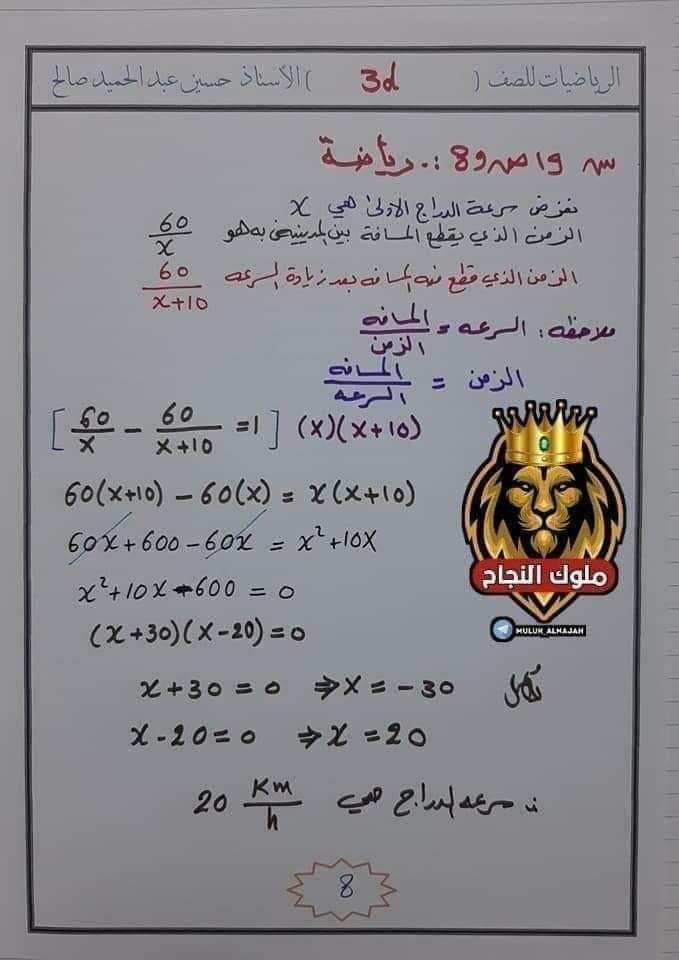 الرياضيات للصف ( 3d ) الأستاذ حسين عبد الحميد صالح
س 9 / ص 98 :. رياضة
نفرض سرعة الدراج الاولى هي x
الزمن الذي يقطع المسافة بين المدينتين به هو 60/x
الزمن الذي قطع فيه المسافه بعد زيادة السرعه 60/x+10
ملاحظه: السرعه = المسافه/الزمن
الزمن = المسافه/السرعه
[60/x - 60/x+10 = 1] (x)(x+10)
60(x+10) - 60(x) = x(x+10)
60x + 600 - 60x = x² + 10x
x² + 10x - 600 = 0
(x+30)(x-20) = 0
x + 30 = 0 ⇒ x = -30 تهمل
x - 20 = 0 ⇒ x = 20
∴ سرعه الدراج هي 20 Km/h
ملوك النجاح
MULUK_ALNAJAH
8